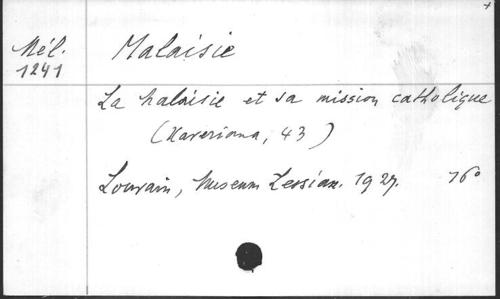 Mél. 1241
Malaisie
La Malaisie et sa mission catholique
(Xaveriana, 43)
Louvain, Museum Lessian. 1927. 16°